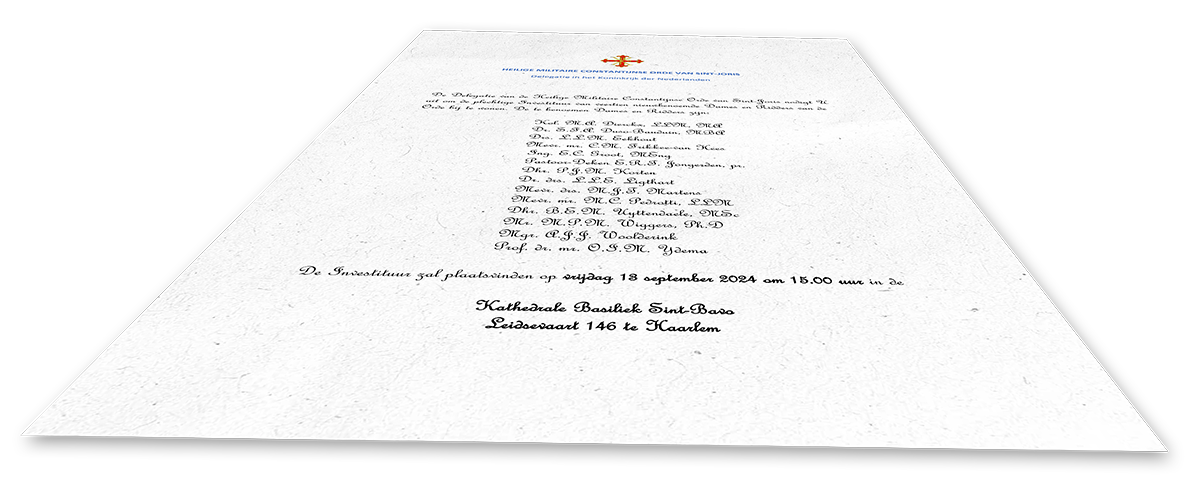 HEILIGE MILITAIRE CONSTANTIJNSE ORDE VAN SINT-JORIS
Delegatie in het Koninkrijk der Nederlanden
De Delegatie van de Heilige Militaire Constantijnse Orde van Sint-Joris nodigt U
uit om de plechtige Investituur van veertien nieuwbenoemde Dames en Ridders van de
Orde bij te wonen. De te benoemen Dames en Ridders zijn:
Kol. M.A. Dierckx, LLM, MA
Dr. S.F.A. Duso-Bauduin, MBA
Drs. L.L.M. Eekhout
Mevr. mr. C.M. Fukkee-van Hees
Ing. E.C. Groot, MEng
Pastoor-Deken E.R.T. Jongerden, pr.
Dhr. P.J.M. Korten
Dr. drs. L.L.E. Ligthart
Mevr. drs. M.J.T. Martens
Mevr. mr. M.C. Pedrotti, LLM
Dhr. B.E.M. Uyttendaele, MSc
Mr. M.P.M. Wiggers, Ph.D
Mgr. A.J.J. Woolderink
Prof. dr. mr. O.I.M. Ydema
De Investituur zal plaatsvinden op vrijdag 13 september 2024 om 15.00 uur in de
Kathedrale Basiliek Sint-Bavo
Leidsevaart 146 te Haarlem